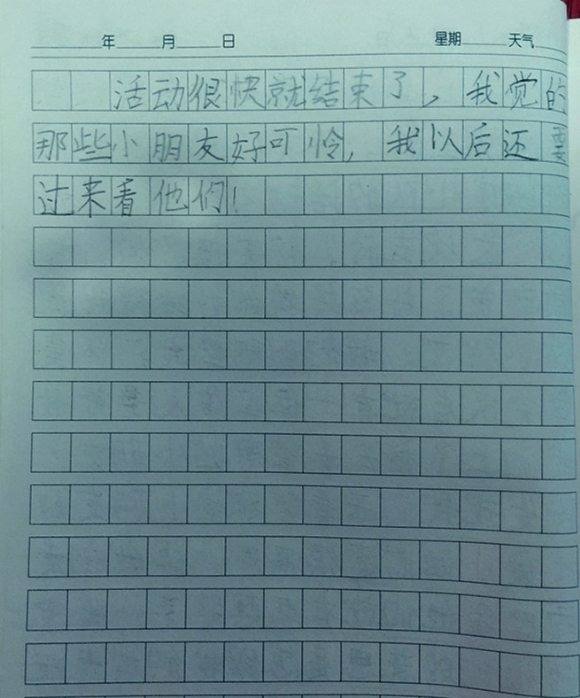 年 月 日 星期 天气
活动很快就结束了，我觉的
那些小朋友好可怜，我以后还要
过来看他们！